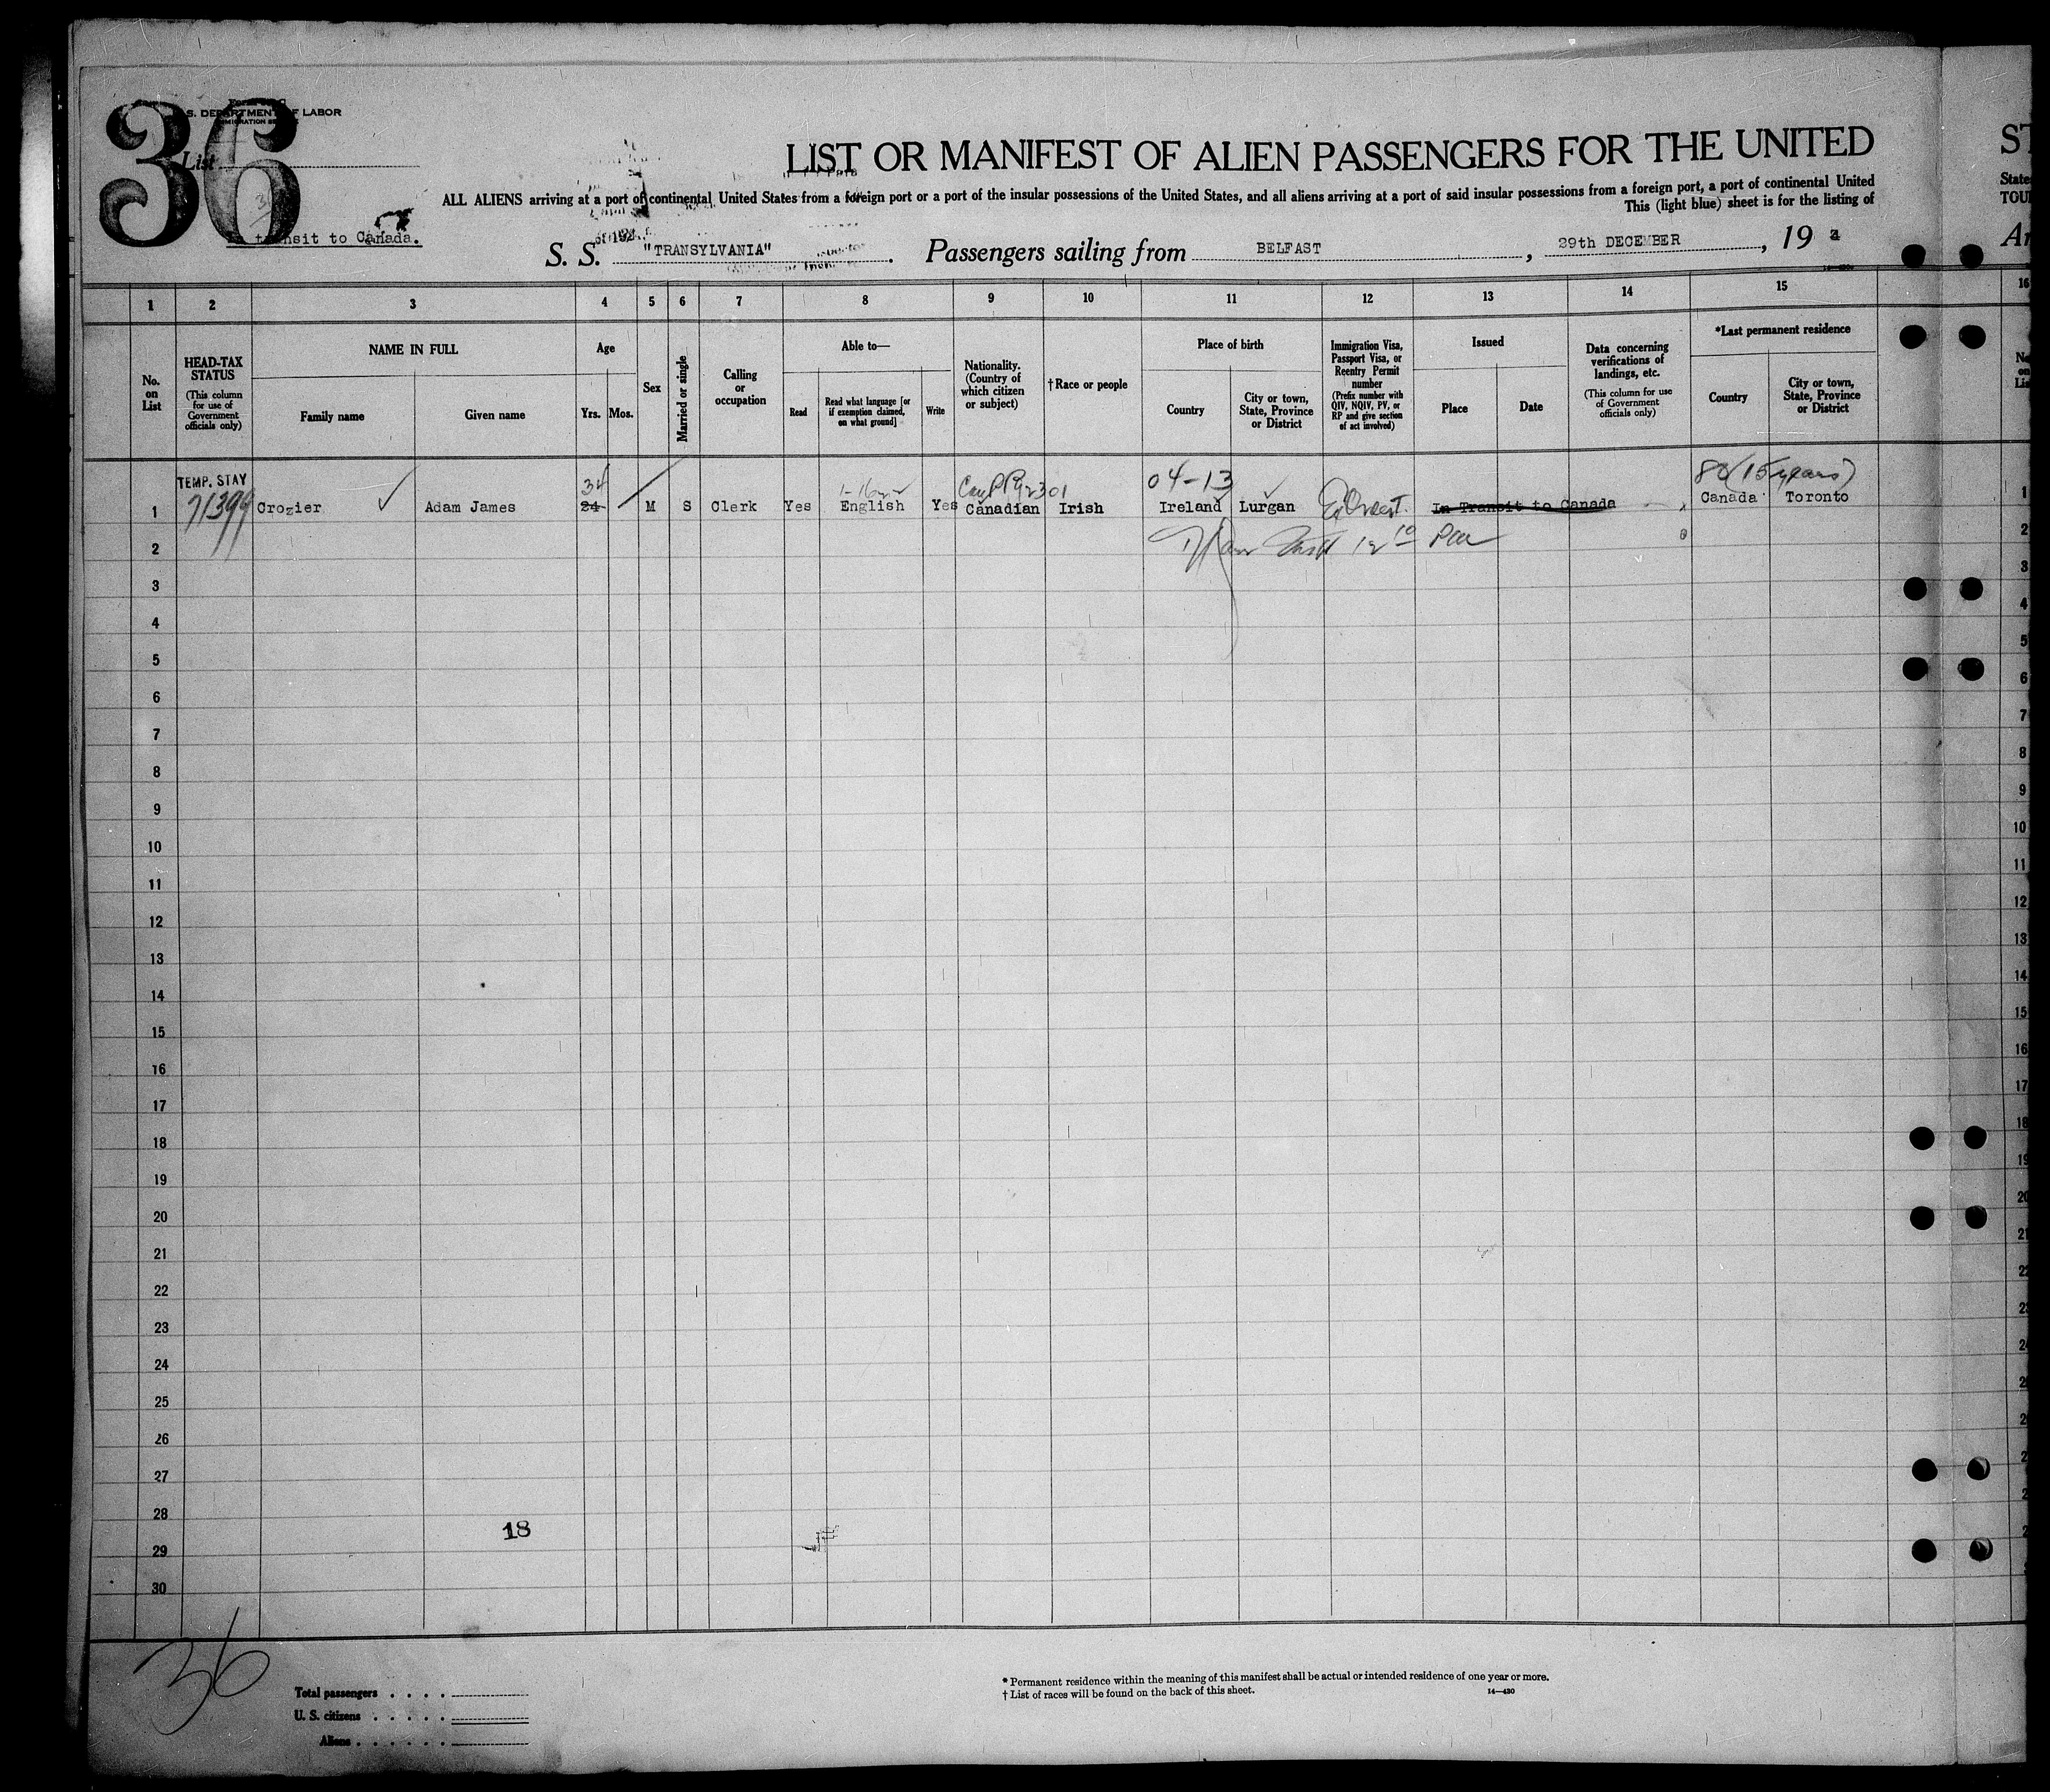 36
S. DEPARTMENT OF LABOR
List
LIST OR MANIFEST OF ALIEN PASSENGERS FOR THE UNITED
ST
ALL ALIENS arriving at a port of continental United States from a foreign port or a port of the insular possessions of the United States, and all aliens arriving at a port of said insular possessions from a foreign port, a port of continental United
State
This (light blue) sheet is for the listing of
TOU
In transit to Canada.
S. S. "TRANSYLVANIA". Passengers sailing from BELFAST, 29th DECEMBER, 19
Ar
1 2 3 4 5 6 7 8 9 10 11 12 13 14 15 16
No. on List
HEAD-TAX STATUS (This column for use of Government officials only)
NAME IN FULL
Family name
Given name
Age
Yrs. Mos.
Sex
Married or single
Calling or occupation
Able to—
Read
Read what language [or if exemption claimed, on what ground]
Write
Nationality. (Country of which citizen or subject)
†Race or people
Place of birth
Country
City or town, State, Province or District
Immigration Visa, Passport Visa, or Reentry Permit number (Prefix number with QIV, NQIV, PV, or RP and give section of act involved)
Issued
Place
Date
Data concerning verifications of landings, etc. (This column for use of Government officials only)
*Last permanent residence
Country
City or town, State, Province or District
No on Lis
TEMP. STAY 34 04-13 (15 years)
1 71399 Crozier Adam James 24 M S Clerk Yes English Yes Canadian Irish Ireland Lurgan In Transit to Canada Canada Toronto 1
2 2
3 3
4 4
5 5
6 6
7 7
8 8
9 9
10 10
11 11
12 12
13 13
14 14
15 15
16 16
17 17
18 18
19 19
20 20
21 21
22 22
23 23
24 2
25 2
26 2
27 2
28 2
18
29 2
30
36
Total passengers . . . .
U. S. citizens . . . . .
Aliens . . . . . .
* Permanent residence within the meaning of this manifest shall be actual or intended residence of one year or more.
† List of races will be found on the back of this sheet.
14—430